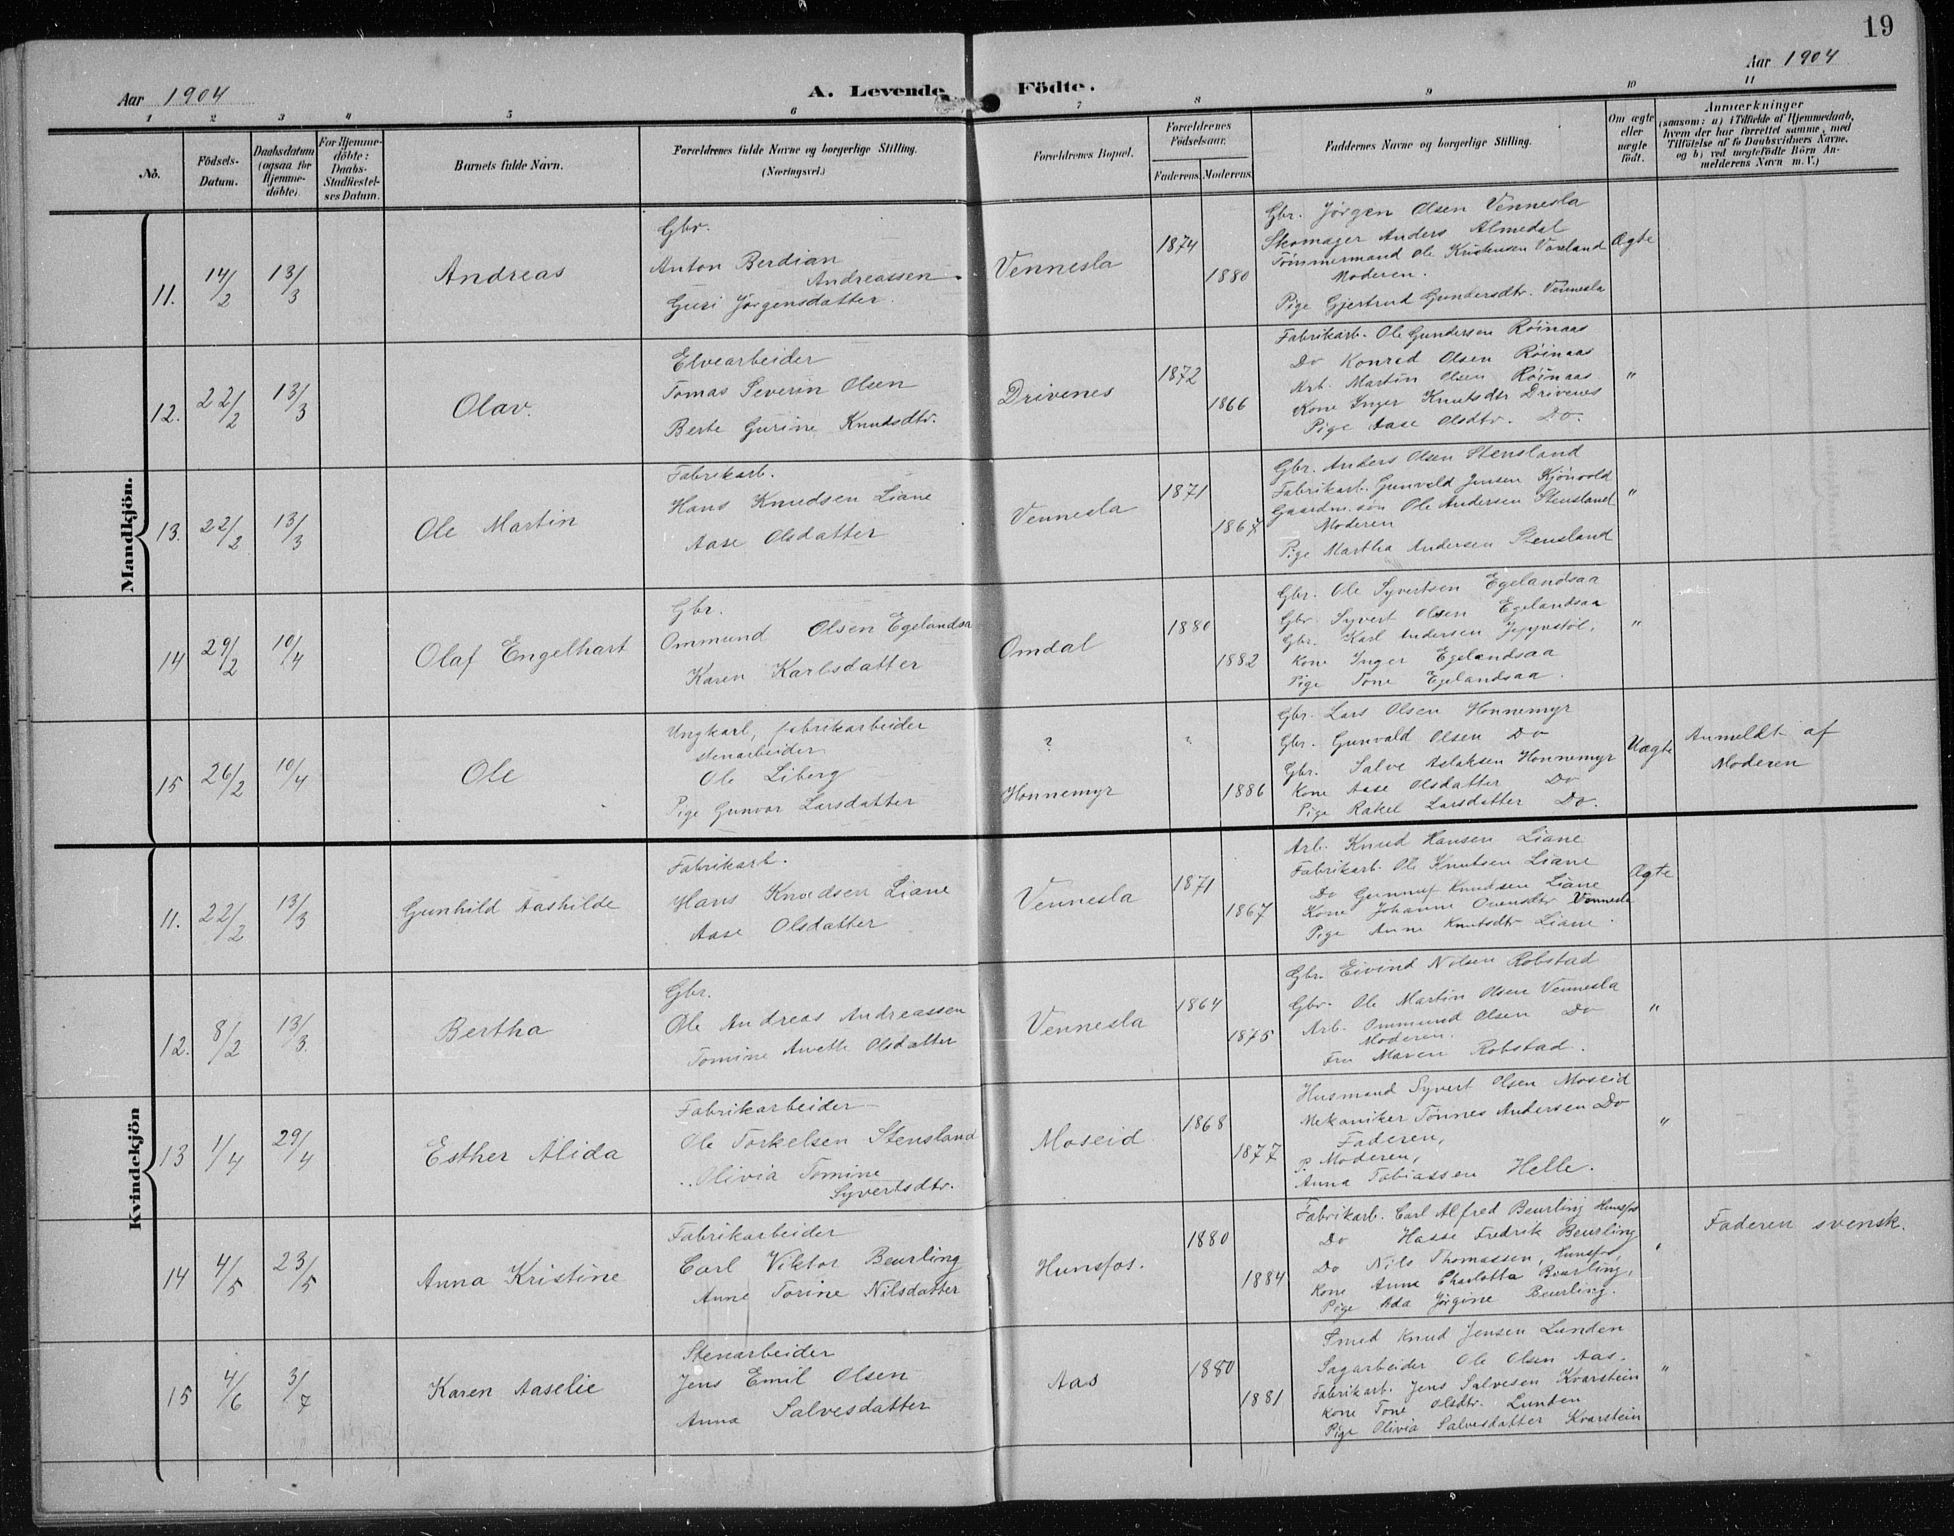 19
Aar 1904
A. Levende Födte.
Aar 1904
1 2 3 4 5 6 7 8 9 10 11
No.
Födsels-Datum.
Daabsdatum (ogsaa for Hjemme-døbte)
For Hjemme-døbte: Daabs-Stadfæstel-ses Datum.
Barnets fulde Navn.
Forældrenes fulde Navne og borgerlige Stilling. (Næringsvei.)
Forældrenes Bopæl.
Forældrenes Födselsaar.
Faderens. Moderens.
Faddernes Navne og borgerlige Stilling.
Om ægte eller uægte født.
Anmærkninger
(saasom: a) i Tilfælde af Hjemmedaab, hvem der har forrettet samme, med Tilföielse af to Daabsvidners Navne, og b) ved uægtefödte Börn Anmelderens Navn m. V.)
Mandkjön.
11. 14/2 13/3
Andreas
Gbr.
Anton Berdian
Andreassen
Guri Jørgensdatter.
Vennesla
1874
1880
Gbr. Jörgen Olsen Vennesla
Skomager Anders Almedal
Tømmermand Ole Kristensen Voreland
Moderen.
Pige Gjertrud Gundersdtr. Vennesla
Ægte
12. 22/2 13/3
Olav.
Elvearbeider
Tomas Severin Olsen
Berte Gurine Knudsdtr.
Drivenes
1872
1866
Fabrikarb. Ole Gundersen Röinaas
Do Konrad Olsen Röinaas
Arb. Martin Olsen Röinaas
Kone Inger Knutsdtr Drivenes
Pige Aase Olsdtr. Do.
"
13. 22/2 13/3
Ole Martin
Fabrikarb.
Hans Knudsen Liane
Aase Olsdatter
Vennesla
1871
1867
Gbr. Anders Olsen Stensland
Fabrikarb. Gunvald Jensen Kjönvold
Gaardm.søn Ole Andersen Stensland
Moderen
Pige Martha Andersen Stensland
"
14 29/2 10/4
Olaf Engelhart
Gbr.
Ommund Olsen Egelandsa
Karen Karlsdatter
Omdal
1880
1882
Gbr. Ole Syvertsen Egelandsaa
Gbr. Syvert Olsen Egelandsaa
Gbr. Karl Andersen Jyppestöl,
Kone Inger Egelandsaa
Pige Tone Egelandsaa.
"
15 26/2 10/4
Ole
Ungkarl, fabrikarbeider
stenarbeider
Ole Liberg
Pige Gunvor Larsdatter
?
Honnemyr
?
1886
Gbr. Lars Olsen Honnemyr
Gbr. Gunvald Olsen Do
Gbr. Salve Aslaksen Honnemyr
Kone Aase Olsdatter Do
Pige Rakel Larsdatter Do.
Uægte
Anmeldt af
Moderen
Kvindekjön
11. 22/2 13/3
Gunhild Aashilde
Fabrikarb.
Hans Knudsen Liane
Aase Olsdatter
Vennesla
1871
1867
Arb. Knud Hansen Liane
Fabrikarb. Ole Knutsen Liane
Do Gunnuf Knudsen Liane
Kone Johanne Ovensdtr Vennesla
Pige Anne Knutsdtr Liane.
Ægte
12. 8/2 13/3
Bertha
Gbr.
Ole Andreas Andreassen
Tomine Anette Olsdatter
Vennesla
1864
1875
Gbr. Eivind Nilsen Robstad
Gbr. Ole Martin Olsen Vennesla
Arb. Ommund Olsen Do
Moderen.
Fru Maren Robstad.
"
13 1/4 29/4
Esther Alida
Fabrikarbeider
Ole Torkelsen Stensland
Olivia Tomine
Syvertsdtr.
Moseid
1868
1877
Husmand Syvert Olsen Moseid
Mekaniker Tønnes Andersen Do
Faderen,
P. Moderen,
Anna Tobiassen Helle.
"
14 4/5 23/5
Anna Kristine
Fabrikarbeider
Carl Viktor Beurling
Anne Torine Nilsdatter
Hunsfos.
1880
1884
Fabrikarb. Carl Alfred Beurling Hunsfos
Do Hasse Fredrik Beurling
Do Nils Thomassen, Hunsfos,
Kone Anna Charlotta Beurling,
Pige Ada Jörgine Beurling.
"
Faderen svensk.
15 4/6 3/7
Karen Aaselie
Stenarbeider
Jens Emil Olsen
Anna Salvesdatter
Aas
1880
1881
Smed Knud Jensen Lunden
Sagarbeider Ole Olsen Aas.
Fabrikarb. Jens Salvesen Kvarstein
Kone Tone Olsdtr. Lunden
Pige Olivia Salvesdatter Kvarstein
"